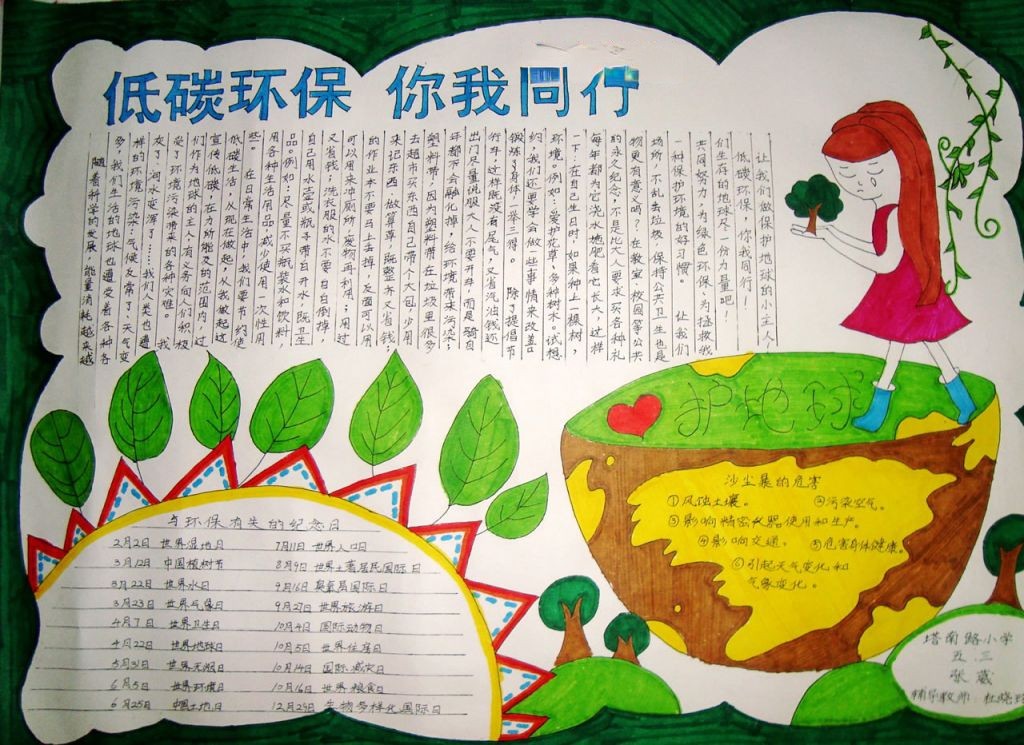 低碳环保 你我同行
随着科学的发展，能量消耗越来越
多，我们生活的地球也遭受着各种各
样的环境污染：气候反常了，天气变
灰了，河水变浑了……我们人类也遭
受了环境污染带来的各种灾难。 我
们作为地球的主人，有义务向人们积极
宣传低碳，在所能及的范围内，过
低碳生活，从现在做起，从我做起这
些 在日常生活中，我们要节约使
用各种生活用品，减少使用一次性用
品。例如：尽量不买瓶装水和饮料，
自己用水壶或瓶带白开水，既卫生
又省钱；洗衣服的水不要白白倒掉，
可以用来冲厕所，废物再利用；用过
的作业本不要马上丢掉，反面可以用
来记东西、做算草，既整齐又省钱；
去超市买东西自己带个大包，少用
塑料袋，因为塑料袋在垃圾里很多
年都不会融化掉，给环境带来污染；
出门尽量说服大人不要开车，而是骑自
行车，这样既没有尾气，又省汽油钱还
锻炼了身体一举三得。 除了提倡节
约，我们还要学会做一些事情来改善
环境，例如：爱护花草，多种树木。试想
一下：在自己生日时，如果种上一棵树，
每年都为它浇水施肥看它长大，这样
的永久纪念，不是比大人要求买各种礼
物更有意义吗？在教室、校园等公共
场所，不乱丢垃圾，保持公共卫生也是
一种保护环境的好习惯。 让我们
共同努力，为绿色环保、为拯救我
们生存的地球尽一份力量吧！
低碳环保，你我同行！
让我们做保护地球的小主人！
护地球
沙尘暴的危害
①风蚀土壤。 ②污染空气。
③影响精密仪器使用和生产。
④影响交通。 ⑤危害身体健康。
⑥引起天气变化和
气象变化。
与环保有关的纪念日
2月2日 世界湿地日 7月11日 世界人口日
3月12日 中国植树节 8月9日 世界土著居民国际日
3月22日 世界水日 9月16日 臭氧层国际日
3月23日 世界气象日 9月27日 世界旅游日
4月7日 世界卫生日 10月4日 国际动物日
4月22日 世界地球日 10月5日 世界住房日
5月31日 世界无烟日 10月14日 国际减灾日
6月5日 世界环境日 10月16日 世界粮食日
6月25日 中国土地日 12月29日 生物多样化国际日
塔南路小学
五.三
张葳
辅导教师：杜晓